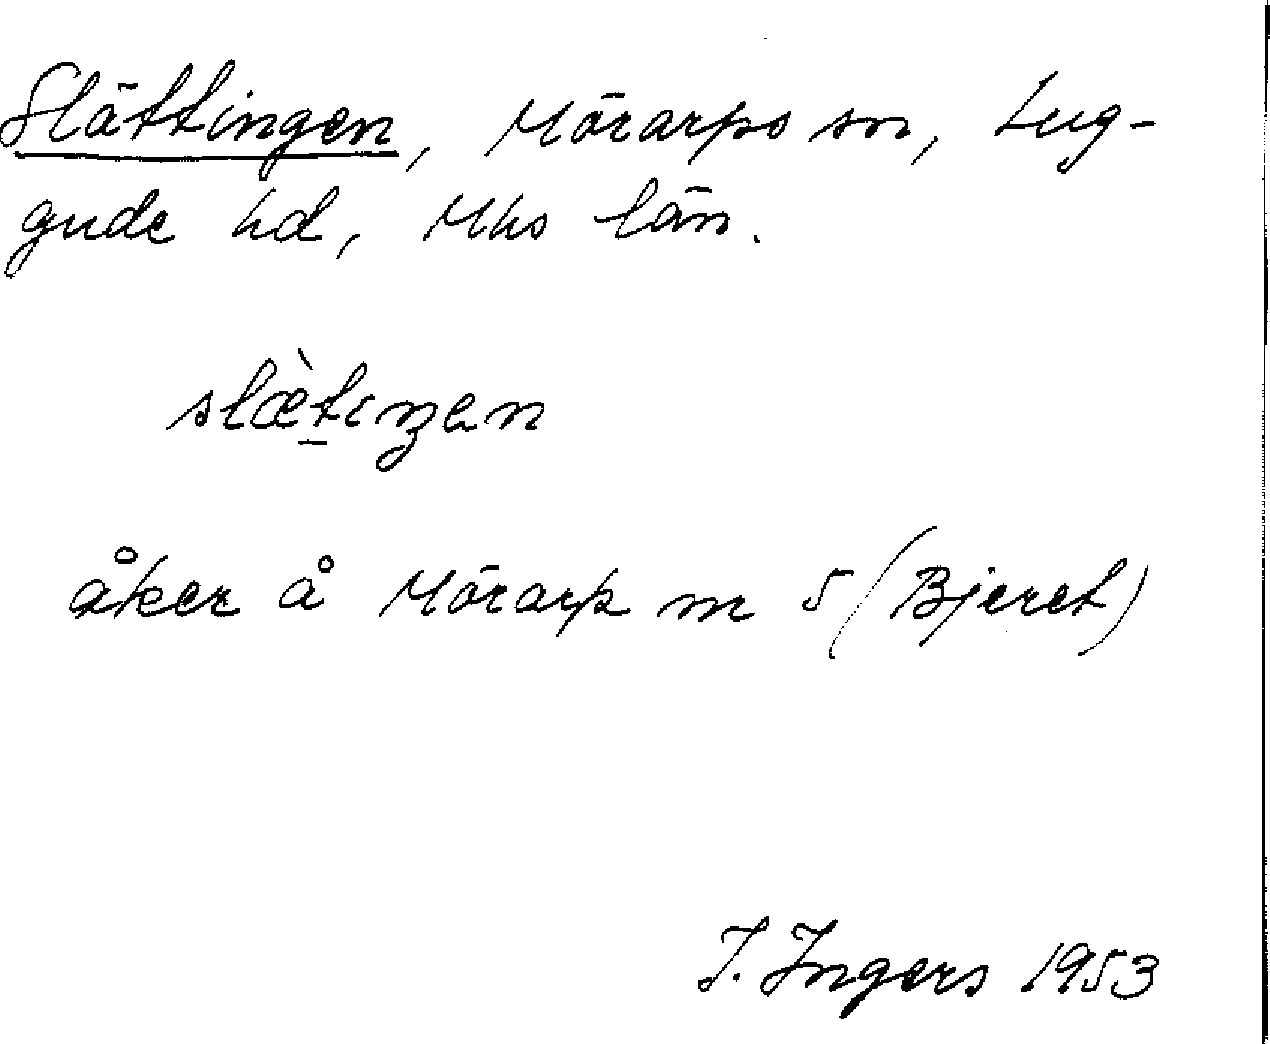 Slättingen, Mörarps sn, Lug-
gude hd, Mhs län.
slæ̀tiŋen
åker å Mörarp nr 5 (Bjeret)
I. Ingers 1953